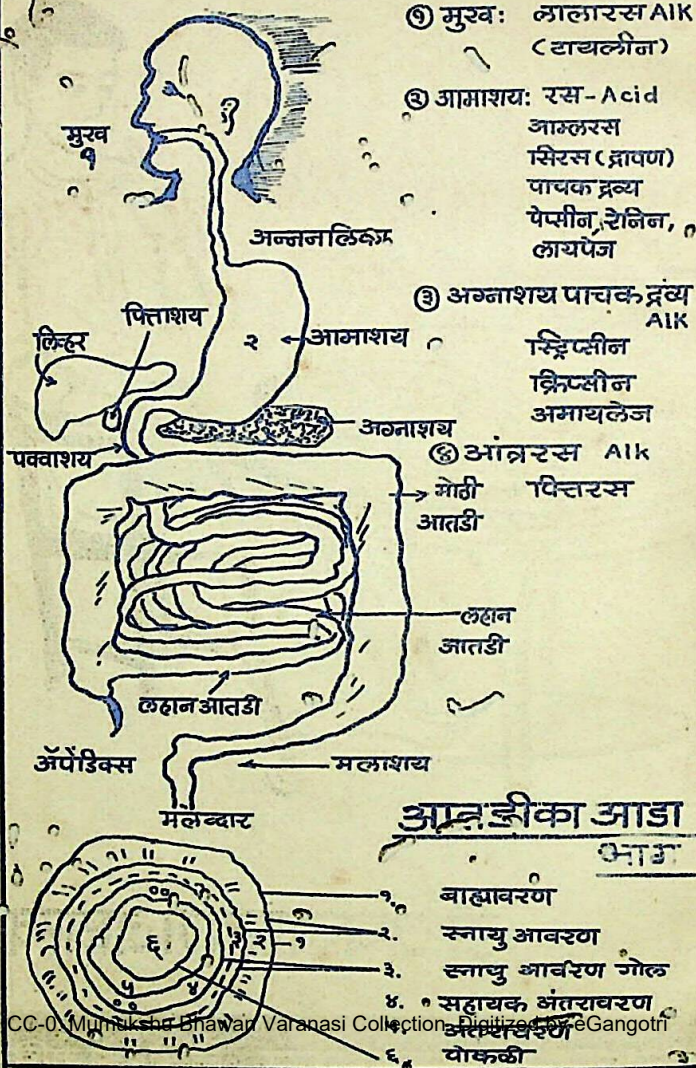 १ मुख: लालारस Alk
(टायलीन)
२ आमाशय: रस-Acid
आम्लरस
सिरस (द्रापण)
पाचक द्रव्य
पेप्सीन, रेनिन,
लायपेज
३ अग्नाशय पाचक द्रंव्य
Alk
स्ट्रिप्सीन
क्रिप्सीन
अमायलेज
४ आंत्ररस Alk
पित्तरस
मुख
१
अन्ननलिका
पित्ताशय
लिव्हर
२
आमाशय
अग्नाशय
पक्वाशय
मोठी
आतडी
लहान
आतडी
लहान आतडी
ॲपेंडिक्स
मलाशय
मलव्दार
आतडीका आडा
भाग
१. बाह्यावरण
२. स्नायु आवरण
३. स्नायु आवरण गोल
४. सहायक अंतरावरण
५. अंतरावरण
६. पोकळी
१
२
१
४
५
६
CC-0. Mumukshu Bhawan Varanasi Collection. Digitized by eGangotri